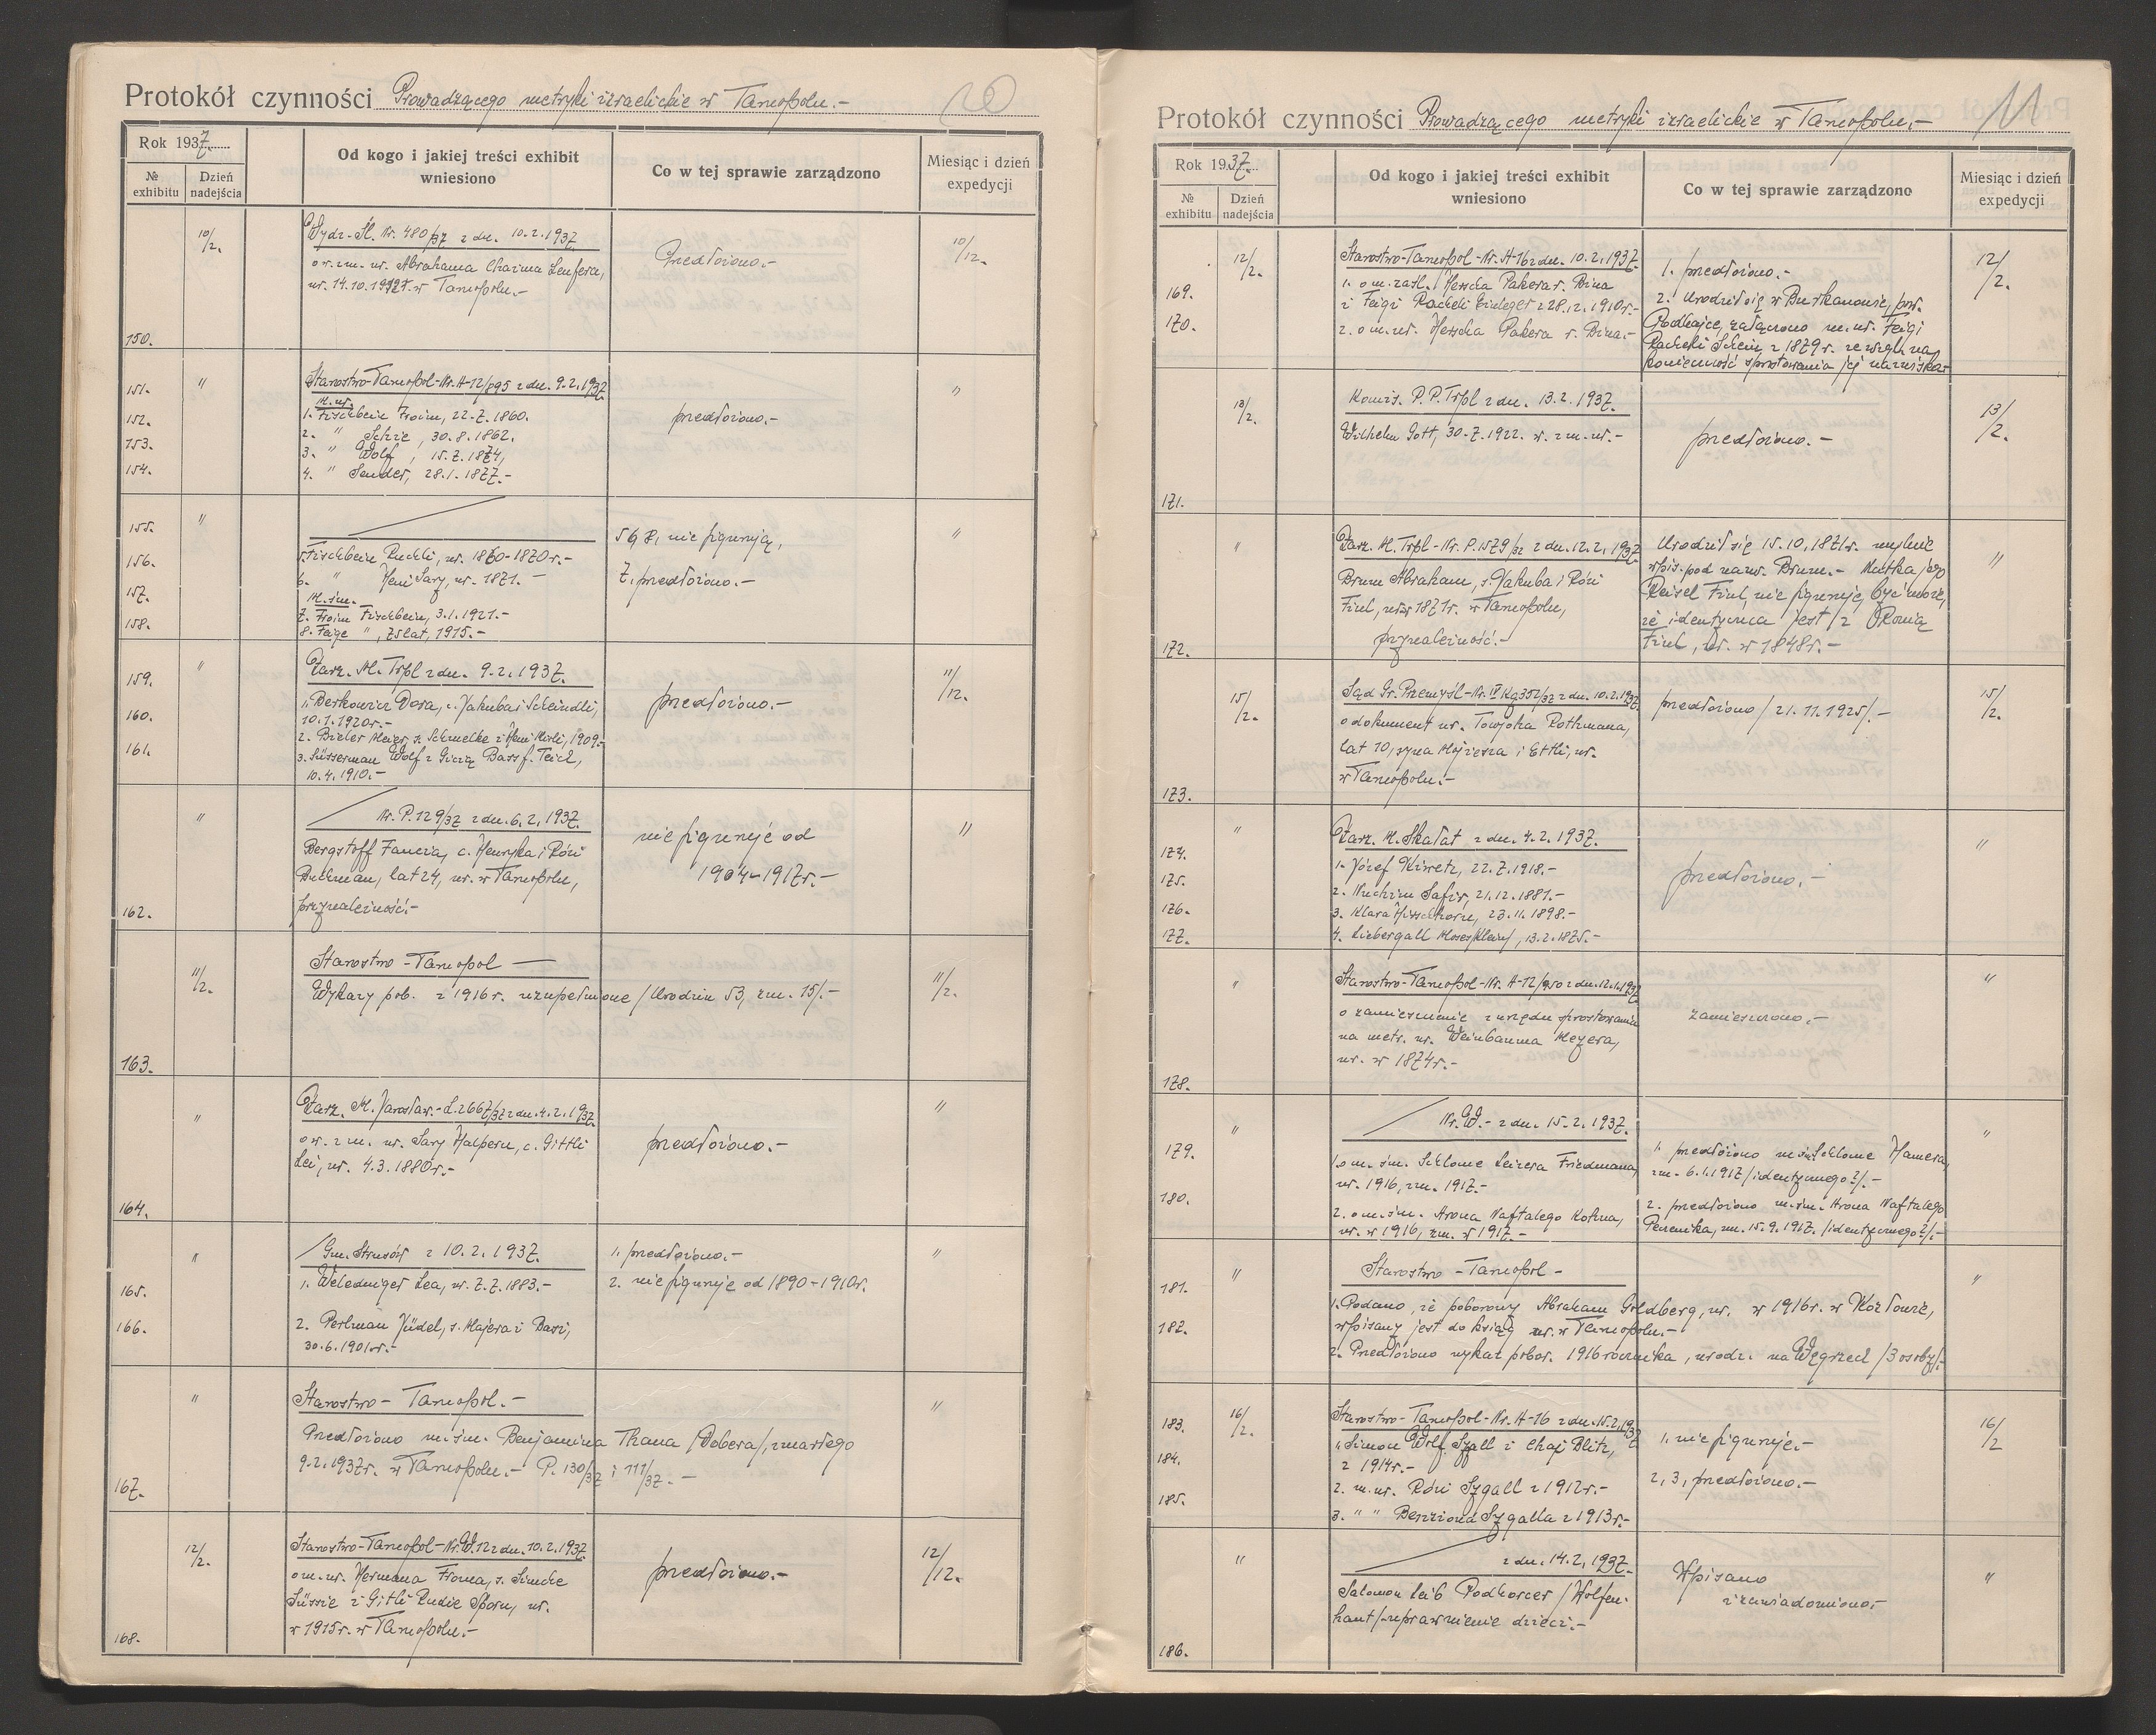 Protokół czynności Prowadzącego metryki izraelickie w Tarnopolu.-
Rok 1937.
№ exhibitu
Dzień nadejścia
Od kogo i jakiej treści exhibit wniesiono
Co w tej sprawie zarządzono
Miesiąc i dzień expedycji
150.
10/2.
Wydz. Śl. Nr. 480/37 z dn. 10.2.1937
o w. z m. ur. Abrahama Chaima
ur. 14.10. w Tarnopolu.-
Przedłożono.-
10/12.
151.
152.
153.
154.
"
Starostwo-Tarnopol-Nr. A-12/895 z dn. 9.2.1937
M. ur.
1. Fischbein Froim, 22.7.1860.
2. " , 30.8.1862.
3. " Wolf, 15.7.1874,
4. " Sender, 28.1.1877.-
przedłożono.-
"
155.
156.
157.
158.
"
5. Fischbein Ruchli, ur. 1860-1870r.-
6. " Heni Sary, ur. 1871.-
M. śm.
7. Froim Fischbein, 3.1.1921.-
8. Feige ", 75 lat, 1915.-
5, 6, 8, nie figurują,
7, przedłożono.-
"
159.
160.
161.
"
Zarz. M. Trpl z dn. 9.2.1937.
1. Berkowicz Dora, c. Jakuba i Scheindli,
10.1.1920r.-
2. Bieler Meier, s. Schmelke i Heni Mirli, 1909.-
3. Süsserman Wolf z Gicią Bass f. Teich,
10.4.1910.-
przedłożono.-
11/12.
162.
"
Nr. P. 129/37 z dn. 6.2.1937.
Bergstoff Fancia, c. Henryka i Róži
Buchman, lat 24, ur. w Tarnopolu,
przynależność.-
nie figuruje od
1904-1917r.-
"
163.
11/2.
Starostwo-Tarnopol —
Wykazy pob. z 1916r. uzupełnione /Urodzin 53, zm. 15/.-
11/2.
164.
"
Zarz. M. Jarosław.-L. 2667/37 z dn. 4.2.1937.
o w. z m. ur. Sary Halpern, c. Gittli
Lei, ur. 4.3.1880r.-
przedłożono.-
"
165.
166.
"
Gm. Strusów z 10.2.1937.
1. Weledniger Lea, ur. 7.7.1883.-
2. Perlman Jüdel, s. Majera i Basi,
30.6.1901r.-
1. przedłożono.-
2. nie figuruje od 1890-1910r.
"
167.
"
Starostwo-Tarnopol.-
Przedłożono m. śm. Benjamina Thana /Dobera/, zmarłego
9.2.1937r. w Tarnopolu.- P. 130/37 i 111/37.-
"
168.
12/2.
Starostwo-Tarnopol-Nr. W. 12 z dn. 10.2.1937.
o m. ur. Hermana Froma, s. Simche
Süssie i Gitli Rudie Sporn, ur.
w 1915r. w Tarnopolu.-
przedłożono.-
12/12.
Protokół czynności Prowadzącego metryki izraelickie w Tarnopolu.-
11
Rok 1937.
№ exhibitu
Dzień nadejścia
Od kogo i jakiej treści exhibit wniesiono
Co w tej sprawie zarządzono
Miesiąc i dzień expedycji
169.
170.
12/2.
Starostwo-Tarnopol-Nr. A-16 z dn. 10.2.1937.
1. o m. zaśl. Herscha Pakera v. Bina
i Feigi Racheli z 28.12.1910r.-
2. o m. ur. Herscha Pakera v. Bina.-
1. przedłożono.-
2. Urodził się w Burkanowie, pow.
Podhajce, załączono m. ur. Feigi
Racheli Schein z 1879r. ze wzgl. na
konieczność sprostowania jej nazwiska.-
12/2.
171.
13/2.
Komis. P.P. Trpl z dn. 13.2.1937.
Wilhelm Gott, 30.7.1922. w. z m. ur.-
przedłożono.-
13/2.
172.
"
Zarz. M. Trpl-Nr. P. 1579/37 z dn. 12.2.1937
Brum Abraham, s. Jakuba i Róži
Fink, ur. w 1871r. w Tarnopolu,
przynależność.-
Urodził się 15.10.1871r. mylnie
wpis. pod nazw. Brum.- Matka jego
Reisel Fink, nie figuruje, być może,
że identyczna jest z
Fink, ur. w 1848r.-
"
173.
15/2.
Sąd Gr. Przemyśl-Nr. IV Kg 352/37 z dn. 10.2.1937.
o dokument ur. Rothmana,
lat 10, syna Mojżesza i Ettli, ur.
w Tarnopolu.-
przedłożono /21.11.1925/.-
15/2.
174.
175.
176.
177.
"
Zarz. M. Skałat z dn. 4.2.1937.
1. Józef Kiwetz, 22.7.1918.-
2. Nuchim Safir, 21.12.1881.-
3. Klara Hirschhorn, 23.11.1898.-
4. Liebergall Moses /Klein/, 13.2.1875.-
przedłożono.-
"
178.
"
Starostwo-Tarnopol-Nr. A-12/950 z dn. 12.1.1937
o zamieszczenie z urzędu sprostowania
na metr. ur. Weinbauma Mejera,
ur. w 1874r.-
zamieszczono.-
"
179.
180.
"
Nr. W.- z dn. 15.2.1937.
1. o m. śm. Schlome Leizera Friedmana,
ur. 1916, zm. 1917.-
2. o m. śm. Arona Naftalego Kohna,
ur. w 1916, zm. w 1917.-
1. przedłożono m. śm. Schlome Hamera,
zm. 6.1.1917 /identycznego?/.-
2. przedłożono m. śm. Arona Naftalego
Perenika, zm. 15.9.1917. /identycznego?/.-
"
181.
182.
"
Starostwo-Tarnopol-
1. Podano, że poborowy Abraham Goldberg, ur. w 1916r. w Kozłowie,
wpisany jest do ksiąg ur. w Tarnopolu.-
2. Przedłożono wykaz pobor. 1916 rocznika, urodz. na Węgrzech /3 osoby/.-
"
183.
184.
185.
16/2.
Starostwo-Tarnopol-Nr. A-16 z dn. 15.2.1937
1. Simon Wolf Szgall i Chaj Blitz,
z 1914r.-
2. m. ur. Róži Szgall z 1912r.-
3. " " Benziona Szgalla z 1913r.-
1. nie figuruje.-
2, 3, przedłożono.-
16/2
186.
"
z dn. 14.2.1937.
Salomon Leib Podhorcer /Wolfen-
haut/-uprawnienie dzieci.-
Wpisano
i zawiadomiono.-
"